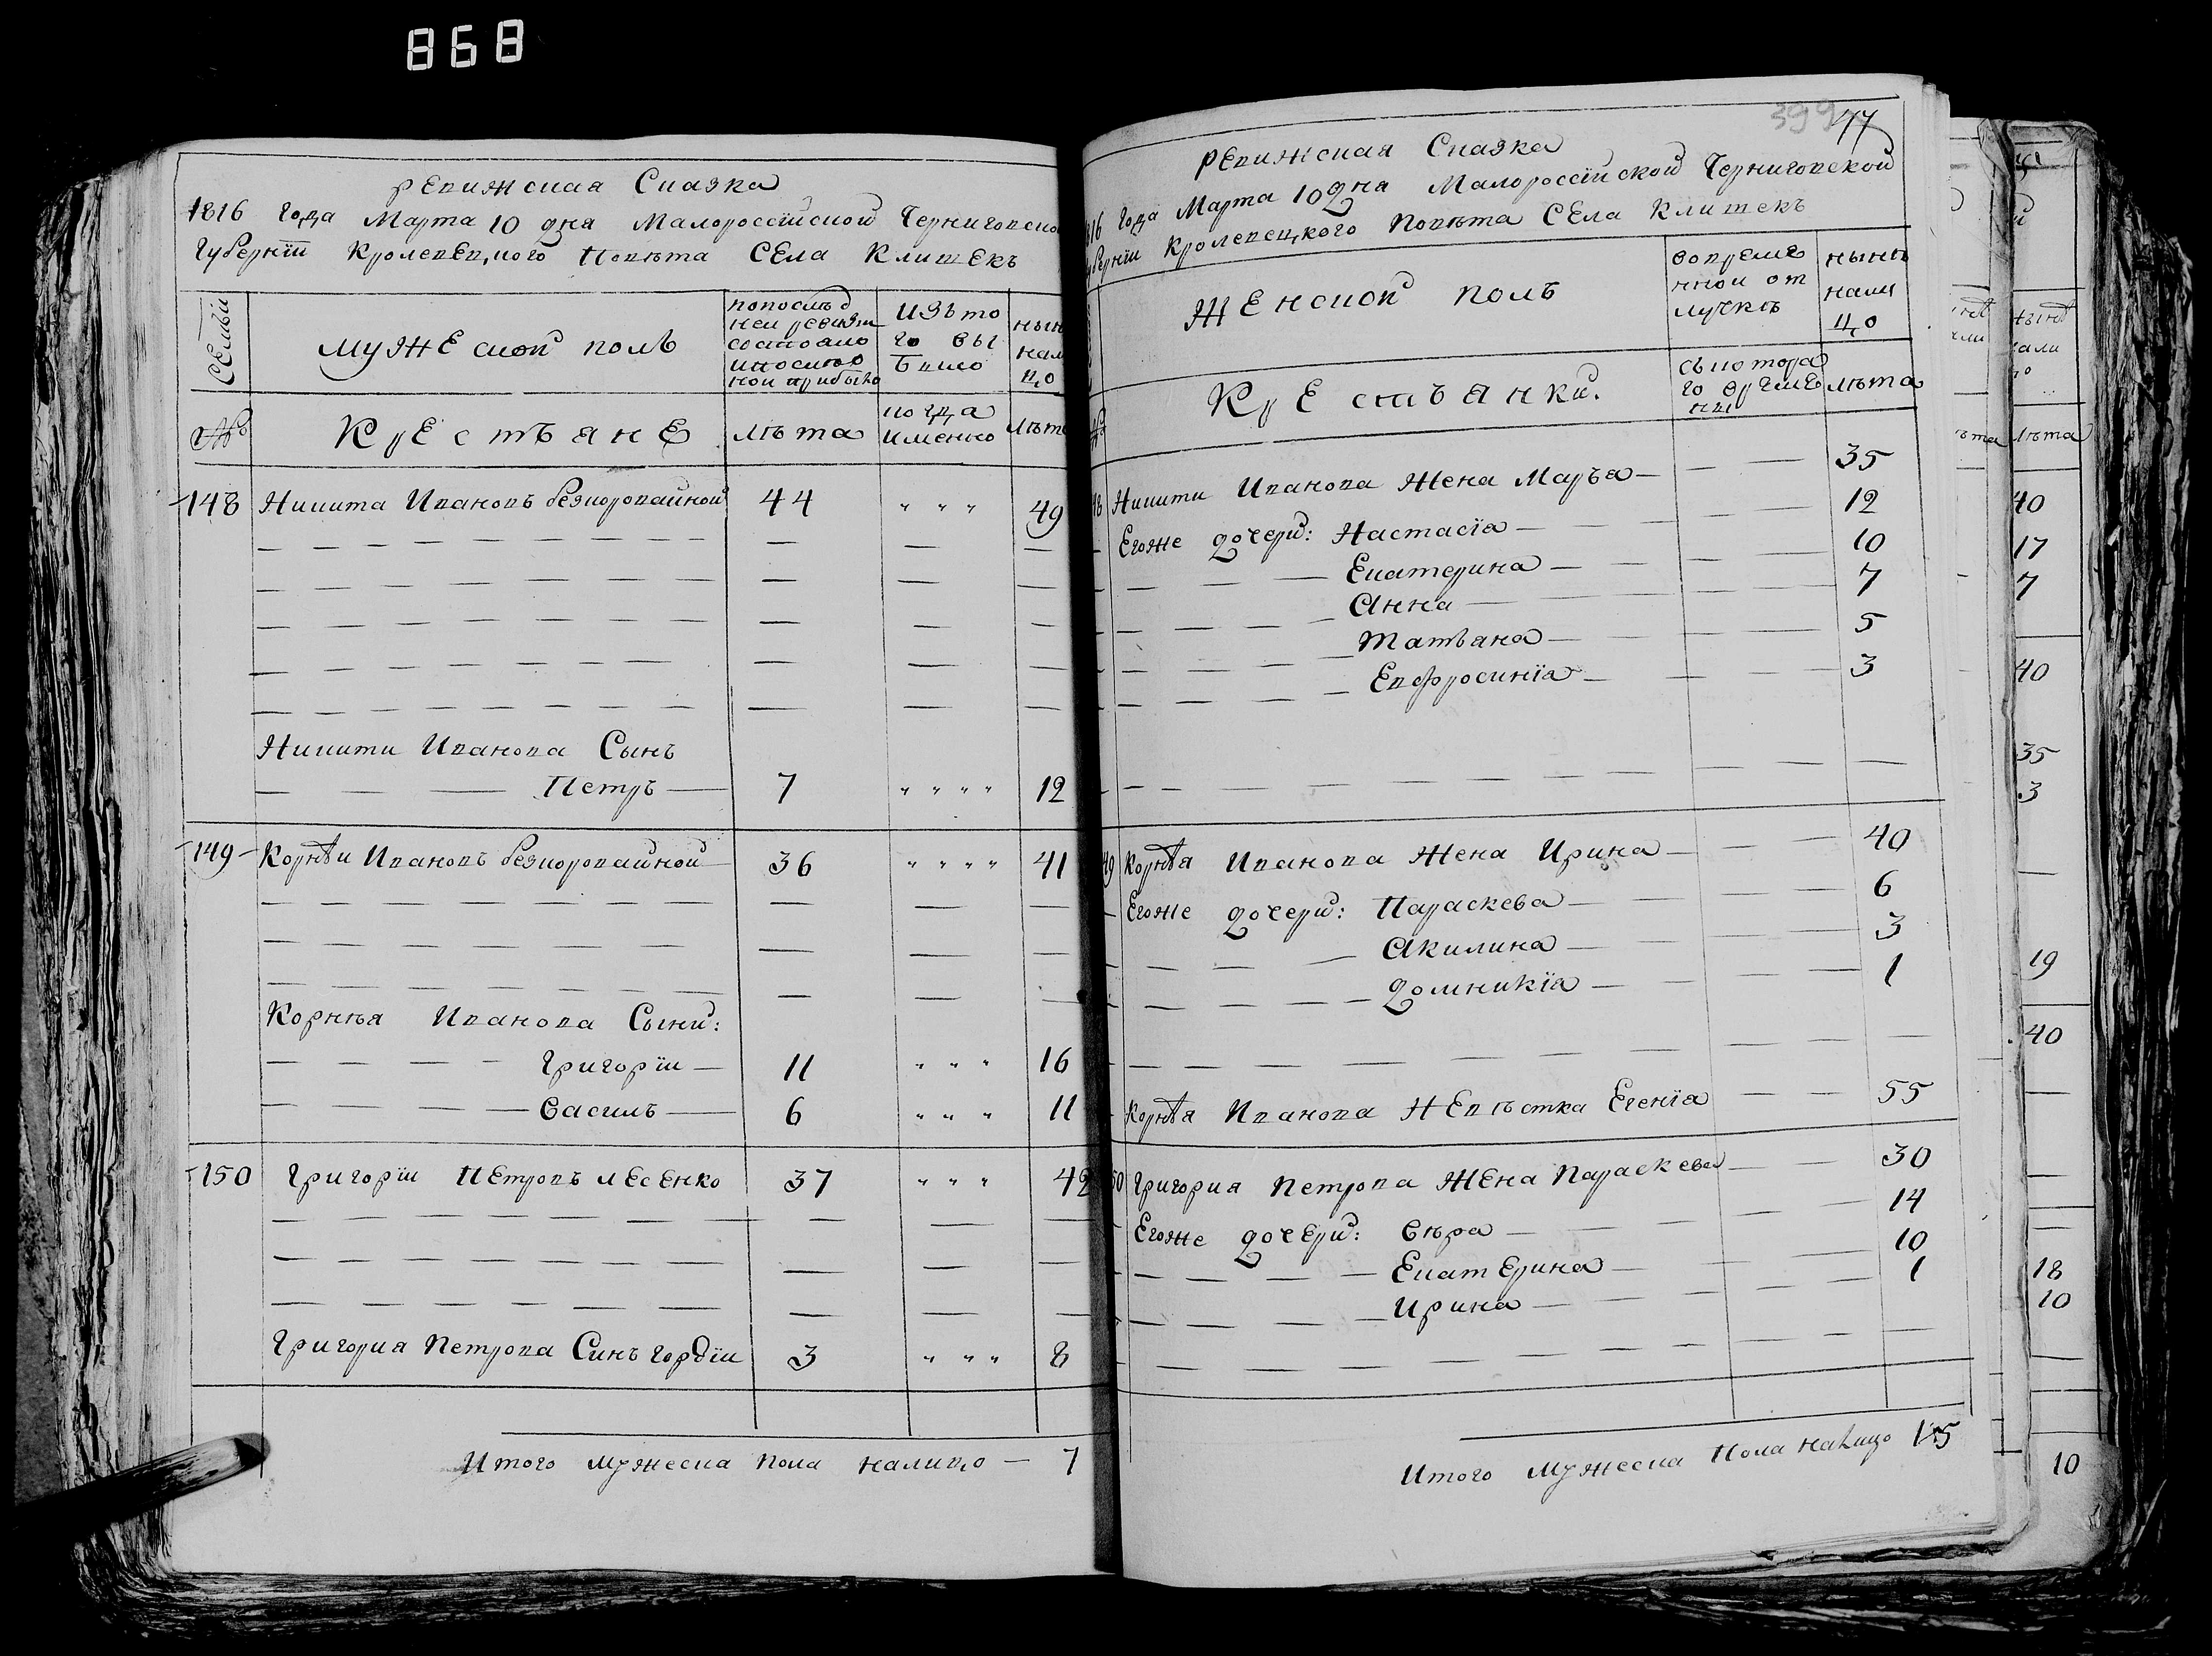 868
Ревижская Сказка
1816 года Марта 10 дня Малороссїйской Черниговско
Губернїи Кролевецкого Повѣта Села Клишекъ
Семьи
мужескои полъ
по послѣд
неи ревизи
состояло
и после о
нои прибыло
изъ то
го вы
было
нын
нали
цо
№
Крестьяне
лѣта
когда
именно
лѣта
148 Никита Ивановъ безкоровайной 44 " " " 49
Никити Иванова Сынъ
Петръ 7 " " " " 12
149 Корнѣи Ивановъ безкоровайной 36 " " " " 41
Корнѣя Иванова Сыни:
Григорїи 11 " " " 16
Василъ 6 " " " 11
150 Григорїи Петровъ лесенко 37 " " " 42
Григория Петрова Синъ гордїи 3 " " " 8
Итого мужеска пола налицо — 7
399 77
Ревижская Сказка
816 года Марта 10 дня Малороссїйской Черниговской
уберніи Кролевецкого Повѣта Села Клишекъ
Женскои полъ
во време
нной от
лучкѣ
нынѣ
нали
цо
№
Крестъянки.
съ котора
го време
ни
лѣта
48 Никити Иванова Жена Маръя — 35
Егоже дочери: Настасїа — 12
Екатерина — 10
Анна — 7
Татьана — 5
Евфросинїа — 3
49 Корнѣя Иванова Жена Ирина — 40
Егоже дочери: Параскева — 6
Акилина — 3
Домникїа — 1
Корнѣя Иванова Невѣстка Евгенїа 55
50 Григория Петрова Жена Параскева — 30
Егоже дочери: Вѣра — 14
Екатерина — 10
Ирина — 1
Итого мужеска Пола налицо 15
нынѣ
нали
цо
лѣта
40
17
7
40
35
3
19
40
18
10
10